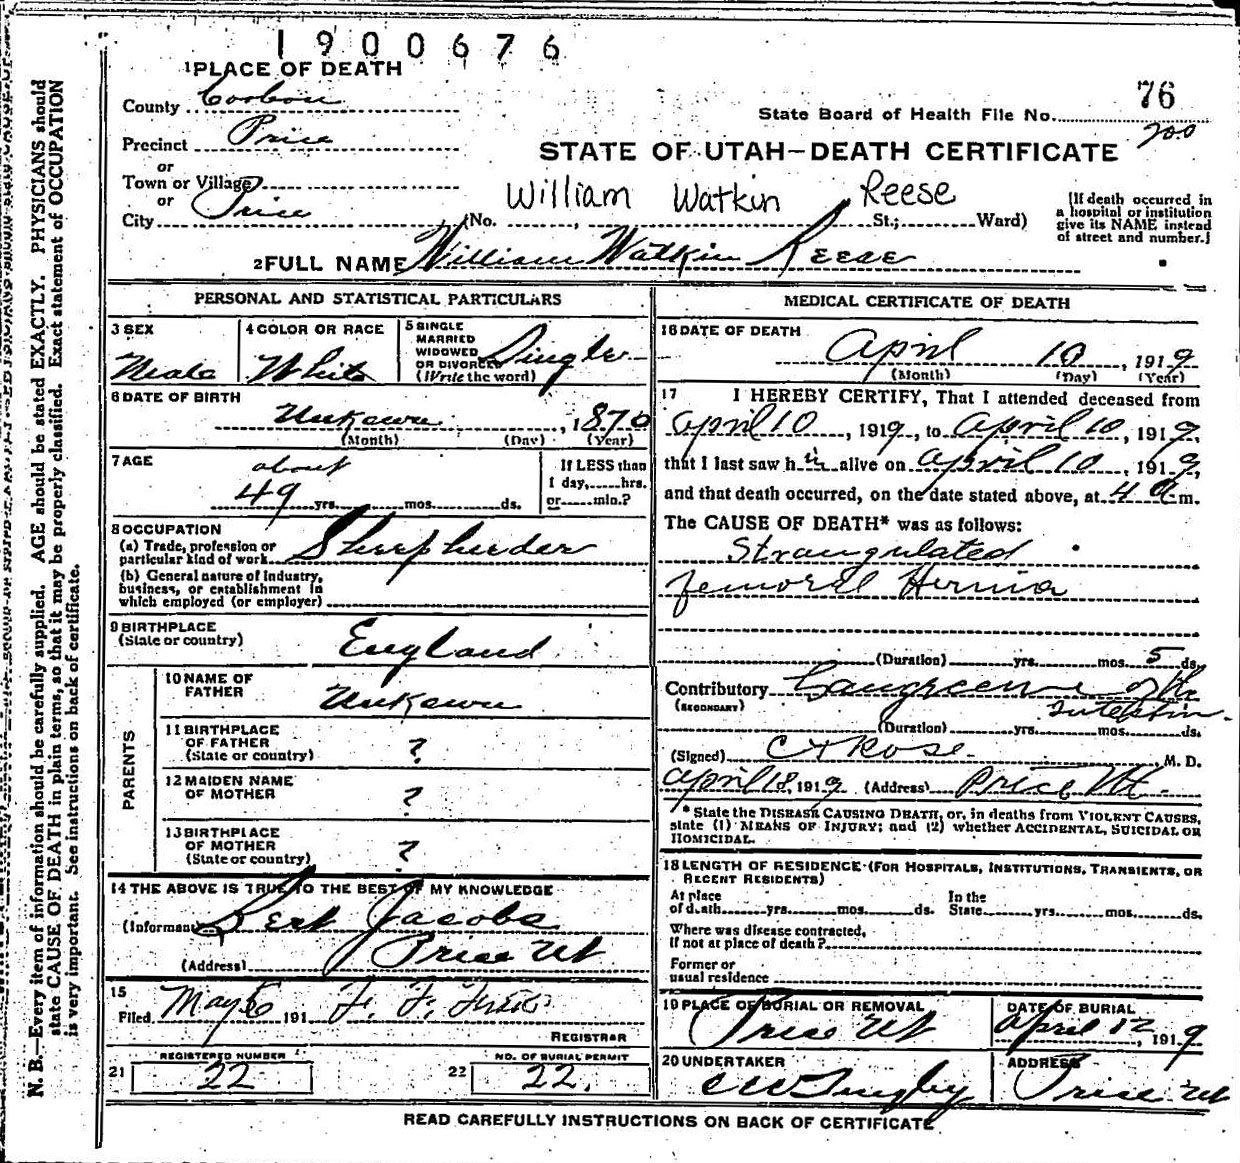 1900676
1 PLACE OF DEATH
County Carbon
Precinct Price
or
Town or Village
or
City Price (No. St.; Ward)
William Watkin Reese
76
State Board of Health File No.
200
STATE OF UTAH—DEATH CERTIFICATE
[If death occurred in
a hospital or institution
give its NAME instead
of street and number.]
2 FULL NAME William Watkin Reese
PERSONAL AND STATISTICAL PARTICULARS
3 SEX
Male
4 COLOR OR RACE
White
5 SINGLE
MARRIED
WIDOWED
OR DIVORCED
(Write the word)
Single
6 DATE OF BIRTH
Unkown, 1870
(Month) (Day) (Year)
7 AGE
about
49 yrs. mos. ds.
If LESS than
1 day, hrs.
or min.?
8 OCCUPATION
(a) Trade, profession or
particular kind of work Sheepheeder
(b) General nature of Industry,
business, or establishment in
which employed (or employer)
9 BIRTHPLACE
(State or country) England
PARENTS
10 NAME OF
FATHER Unkown
11 BIRTHPLACE
OF FATHER
(State or country) ?
12 MAIDEN NAME
OF MOTHER ?
13 BIRTHPLACE
OF MOTHER
(State or country) ?
14 THE ABOVE IS TRUE TO THE BEST OF MY KNOWLEDGE
(Informant) Bert Jacobs
(Address) Price Ut
15
Filed May 6 191 F. F.
REGISTRAR
REGISTERED NUMBER
21 22
NO. OF BURIAL PERMIT
22 22.
MEDICAL CERTIFICATE OF DEATH
16 DATE OF DEATH
April 10, 1919
(Month) (Day) (Year)
17 I HEREBY CERTIFY, That I attended deceased from
April 10, 1919, to April 10, 1919,
that I last saw h alive on April 10, 1919,
and that death occurred, on the date stated above, at 4 a m.
The CAUSE OF DEATH* was as follows:
Strangulated
femoral Hernia
(Duration) yrs. mos. 5 ds.
Contributory Gangreene of the
(SECONDARY) Intestin.
(Duration) yrs. mos. ds.
(Signed) Rose, M. D.
April 18, 1919 (Address) Price Ut.
*State the DISEASE CAUSING DEATH, or, in deaths from VIOLENT CAUSES,
state (1) MEANS OF INJURY; and (2) whether ACCIDENTAL, SUICIDAL OR
HOMICIDAL.
18 LENGTH OF RESIDENCE (FOR HOSPITALS, INSTITUTIONS, TRANSIENTS, OR
RECENT RESIDENTS)
At place
of death yrs. mos. ds.
In the
State yrs. mos. ds.
Where was disease contracted,
if not at place of death?
Former or
usual residence
19 PLACE OF BURIAL OR REMOVAL
Price Ut
DATE OF BURIAL
April 12, 1919
20 UNDERTAKER
ADDRESS
Price Ut
READ CAREFULLY INSTRUCTIONS ON BACK OF CERTIFICATE
N. B.—Every item of information should be carefully supplied. AGE should be stated EXACTLY. PHYSICIANS should
state CAUSE OF DEATH in plain terms, so that it may be properly classified. Exact statement of OCCUPATION
is very important. See instructions on back of certificate.